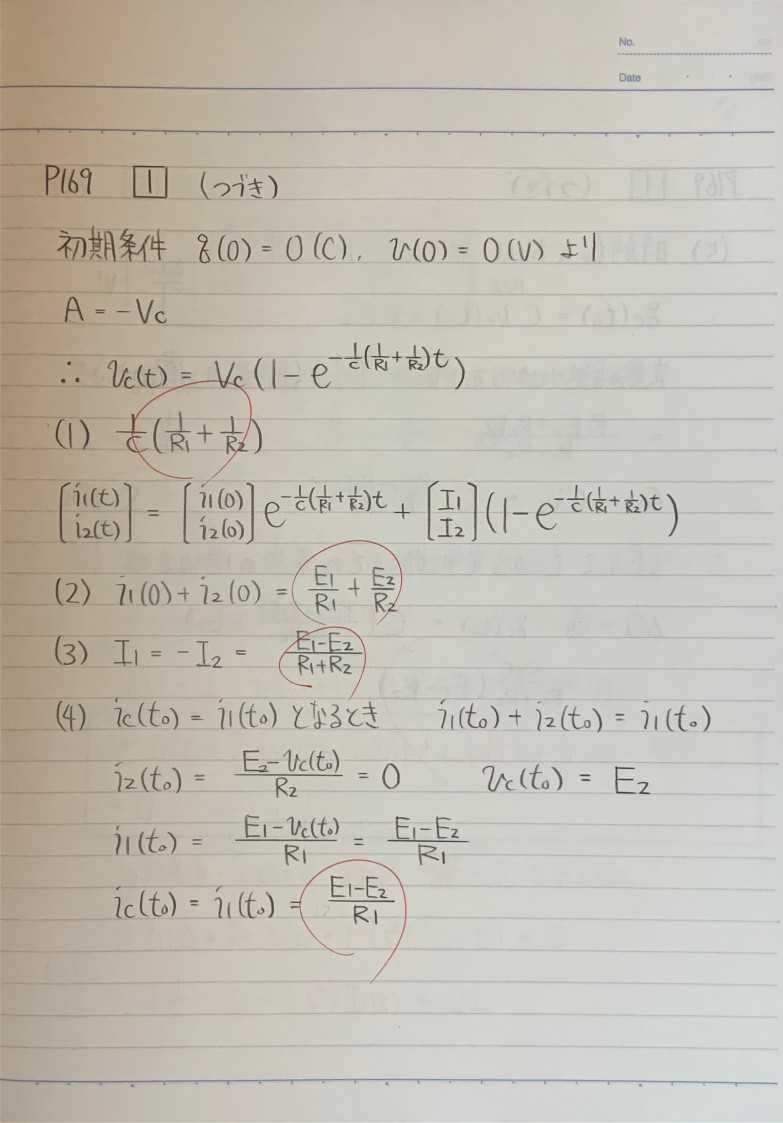 No.
Date
P169 1 (つづき)
初期条件 q(0) = 0 (C), v(0) = 0 (V) より
A = -Vc
∴ vc(t) = Vc (1 - e^{-1/C(1/R1 + 1/R2)t})
(1) 1/C (1/R1 + 1/R2)
[i1(t) i2(t)] = [i1(0) i2(0)] e^{-1/C(1/R1 + 1/R2)t} + [I1 I2] (1 - e^{-1/C(1/R1 + 1/R2)t})
(2) i1(0) + i2(0) = E1/R1 + E2/R2
(3) I1 = -I2 = (E1-E2)/(R1+R2)
(4) ic(t0) = i1(t0) となるとき i1(t0) + i2(t0) = i1(t0)
i2(t0) = (E2-vc(t0))/R2 = 0 vc(t0) = E2
i1(t0) = (E1-vc(t0))/R1 = (E1-E2)/R1
ic(t0) = i1(t0) = (E1-E2)/R1